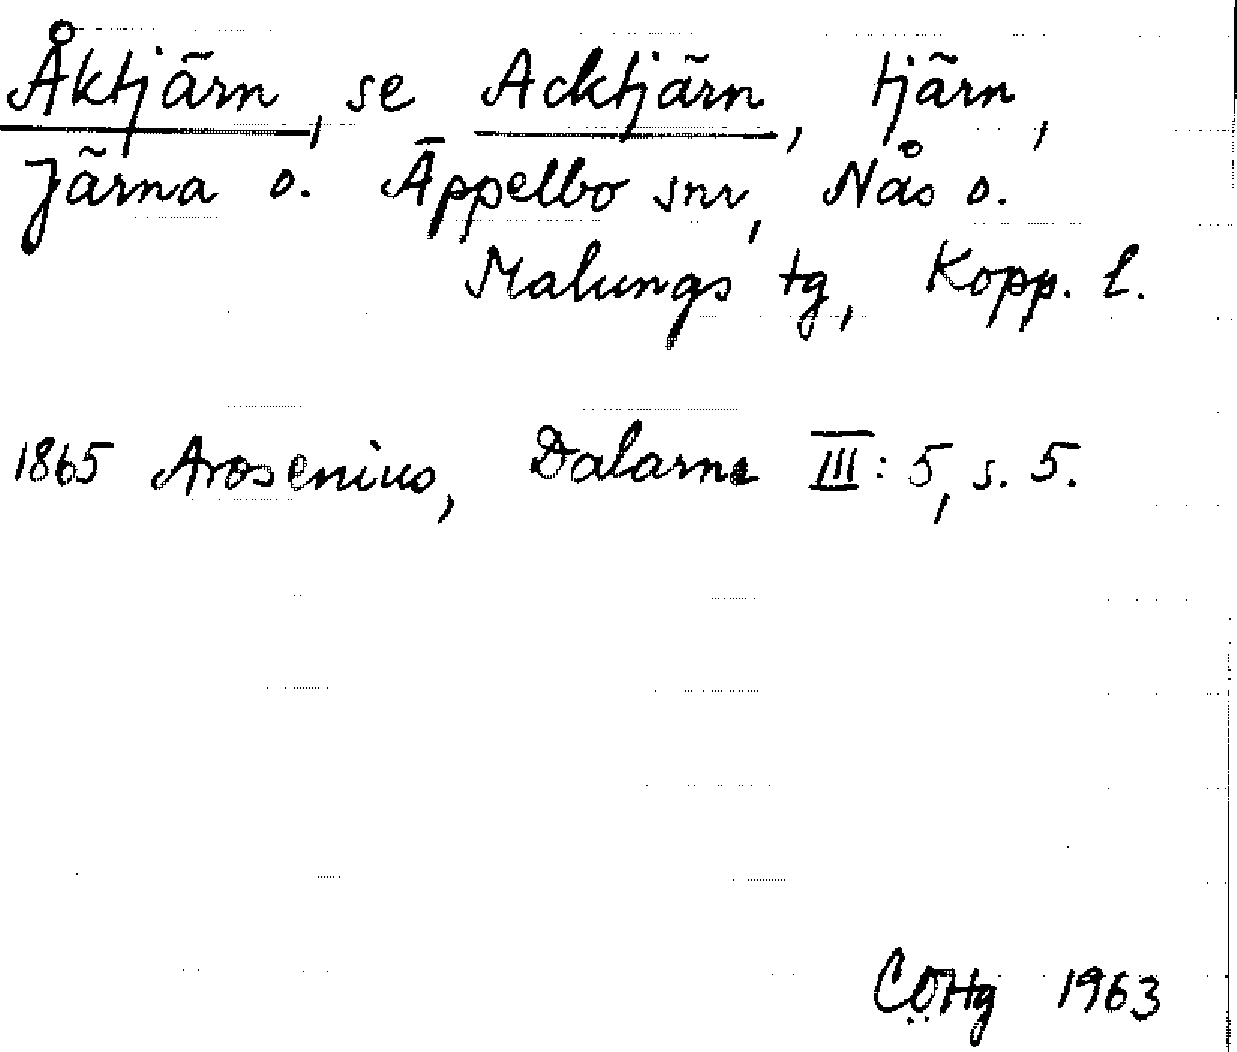 Åktjärn, se Acktjärn, tjärn,
Järna o. Äppelbo snr, Nås o.
Malungs tg, Kopp. l.
1865 Arosenius, Dalarne III: 5, s. 5.
CÖHg 1963